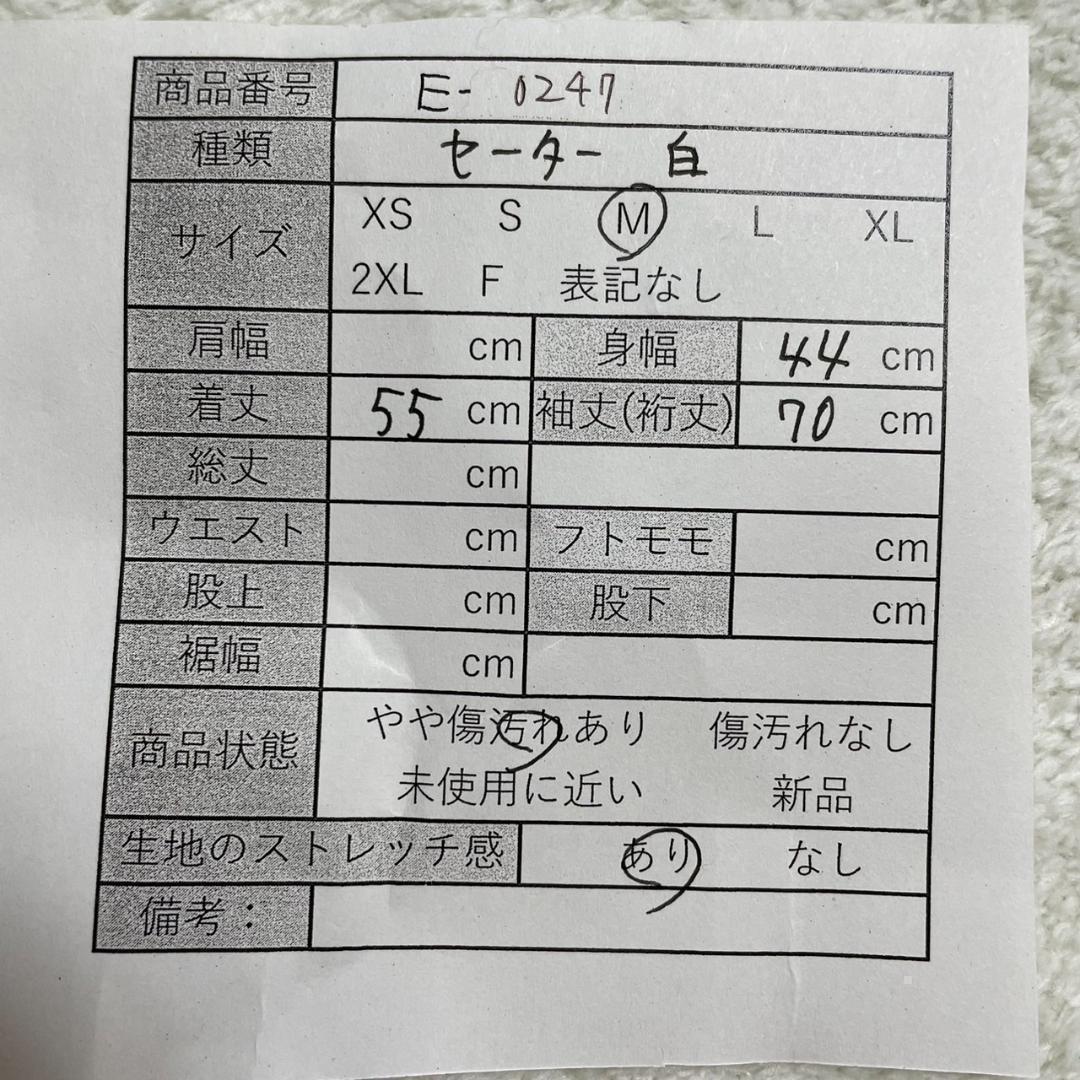 商品番号 E-0247
種類 セーター 白
サイズ XS S M L XL
2XL F 表記なし
肩幅 cm 身幅 44 cm
着丈 55 cm 袖丈(裄丈) 70 cm
総丈 cm
ウエスト cm フトモモ cm
股上 cm 股下 cm
裾幅 cm
商品状態 やや傷汚れあり 傷汚れなし
未使用に近い 新品
生地のストレッチ感 あり なし
備考：